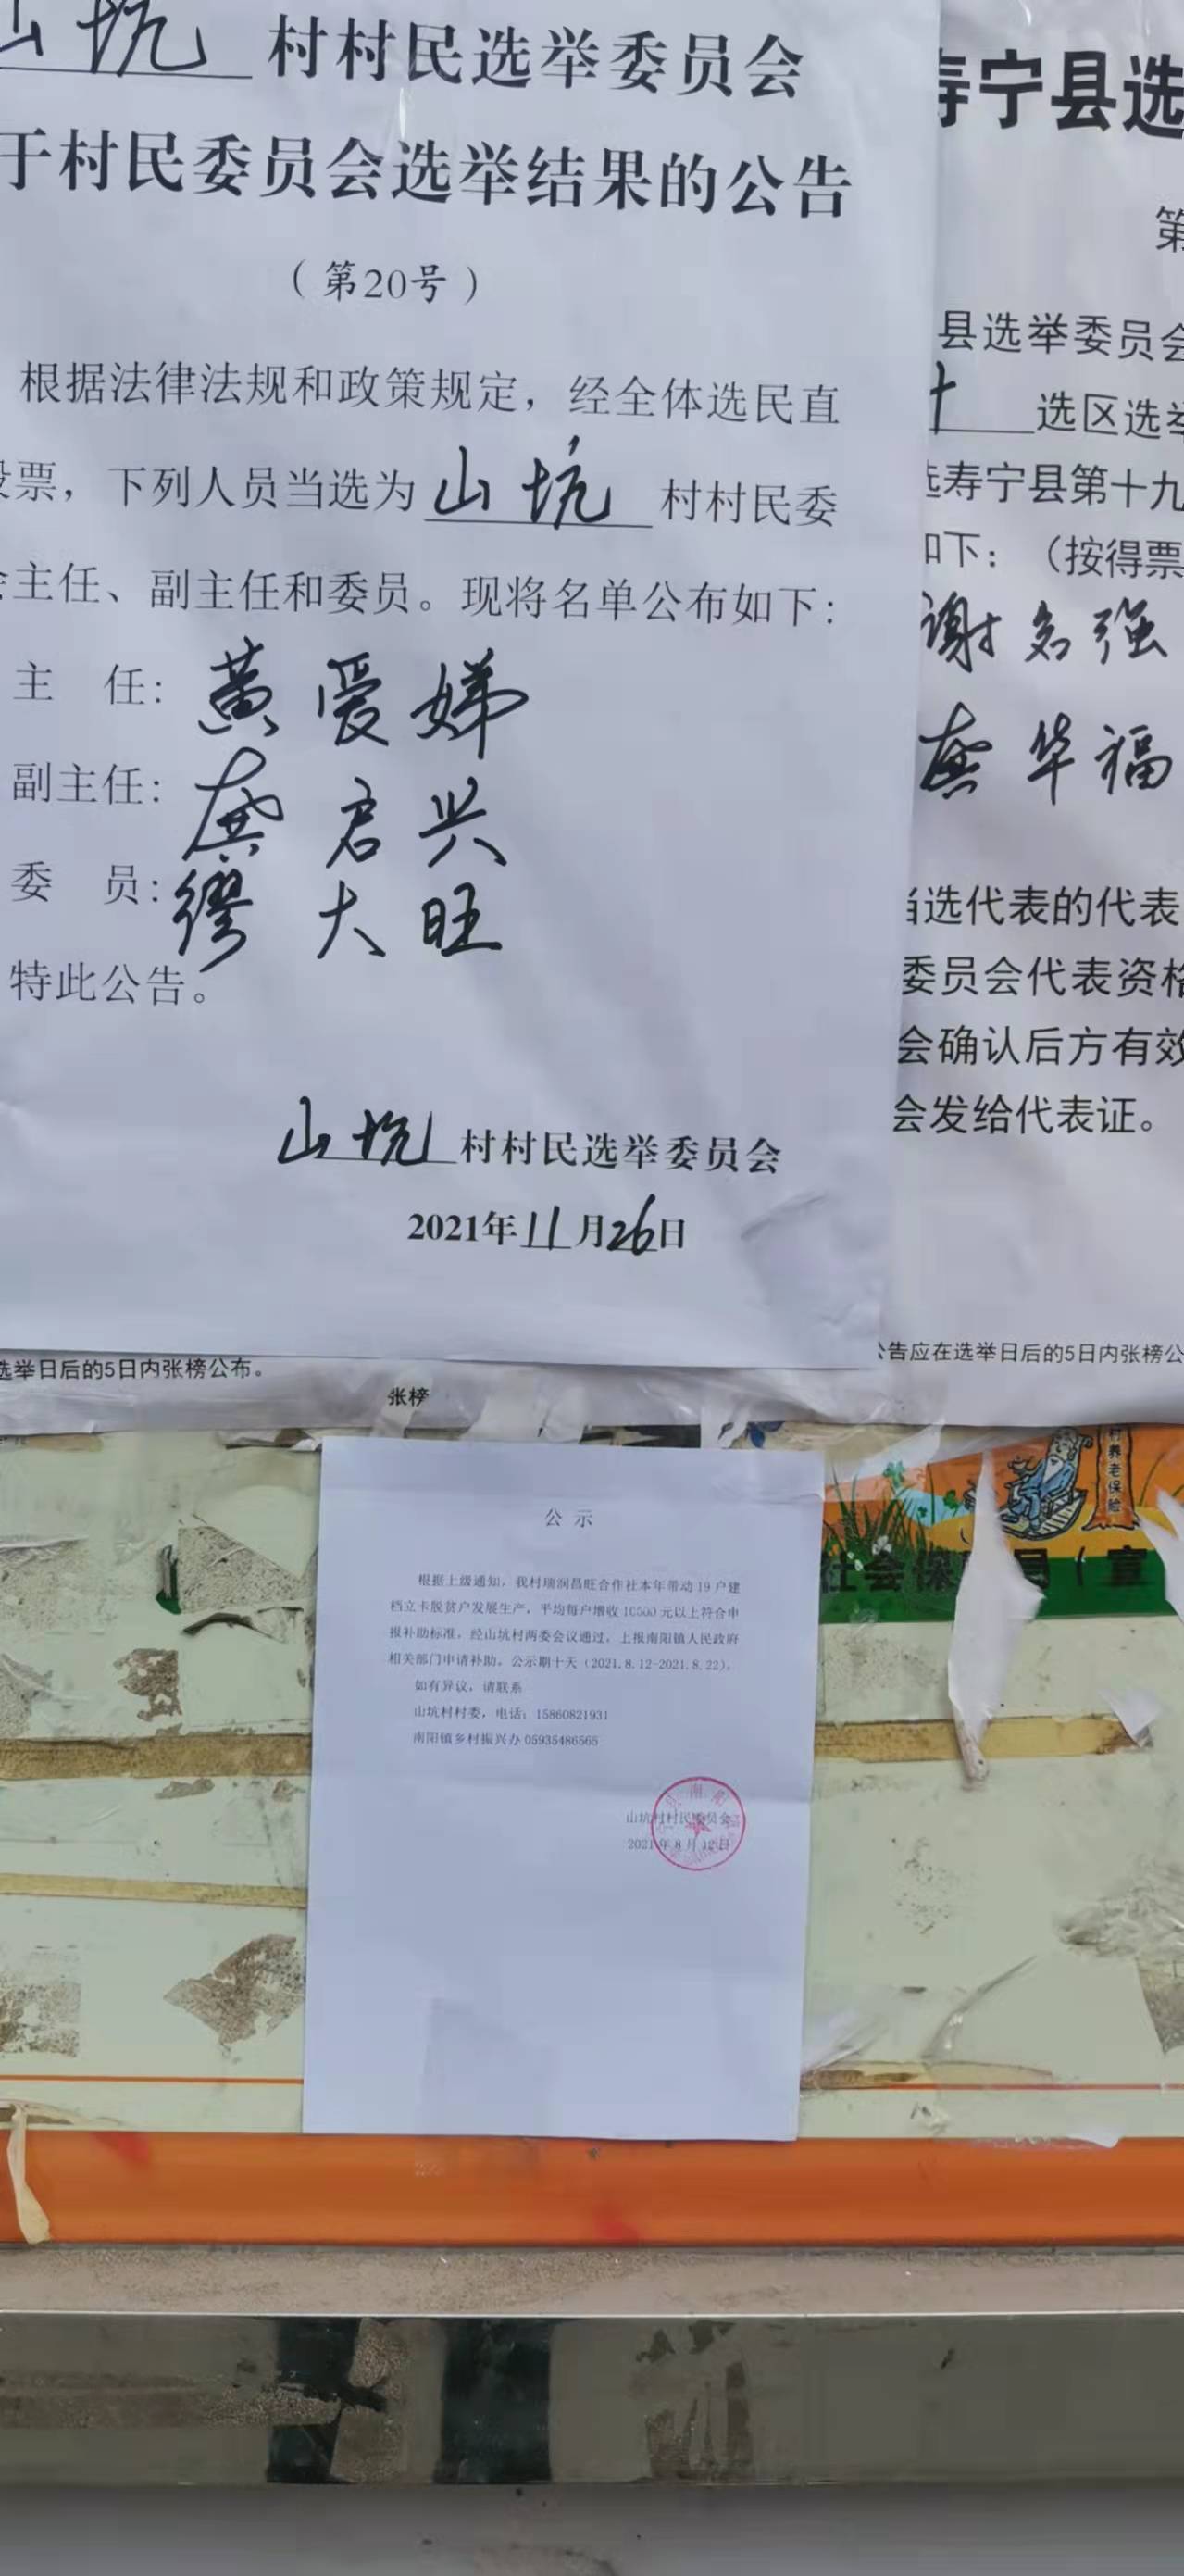 山坑 村村民选举委员会
于村民委员会选举结果的公告
（第20号）
根据法律法规和政策规定，经全体选民直
投票，下列人员当选为 山坑 村村民委
会主任、副主任和委员。现将名单公布如下：
主 任：黄爱娣
副主任：龚启兴
委 员：缪大旺
特此公告。
山坑 村村民选举委员会
2021年11月26日
选举日后的5日内张榜公布。
张榜
寿宁县选
第
县选举委员会
十 选区选举
选寿宁县第十九
如下：（按得票
谢名强
龚华福
当选代表的代表
委员会代表资格
会确认后方有效
会发给代表证。
公告应在选举日后的5日内张榜公
村养老保险
社会保 局（宣
公示
根据上级通知，我村瑞润昌旺合作社本年带动19户建
档立卡脱贫户发展生产，平均每户增收10500元以上符合申
报补助标准，经山坑村两委会议通过，上报南阳镇人民政府
相关部门申请补助。公示期十天（2021.8.12-2021.8.22）。
如有异议，请联系
山坑村村委，电话：15860821931
南阳镇乡村振兴办 05935486565
山坑村村民委员会
2021年8月12日